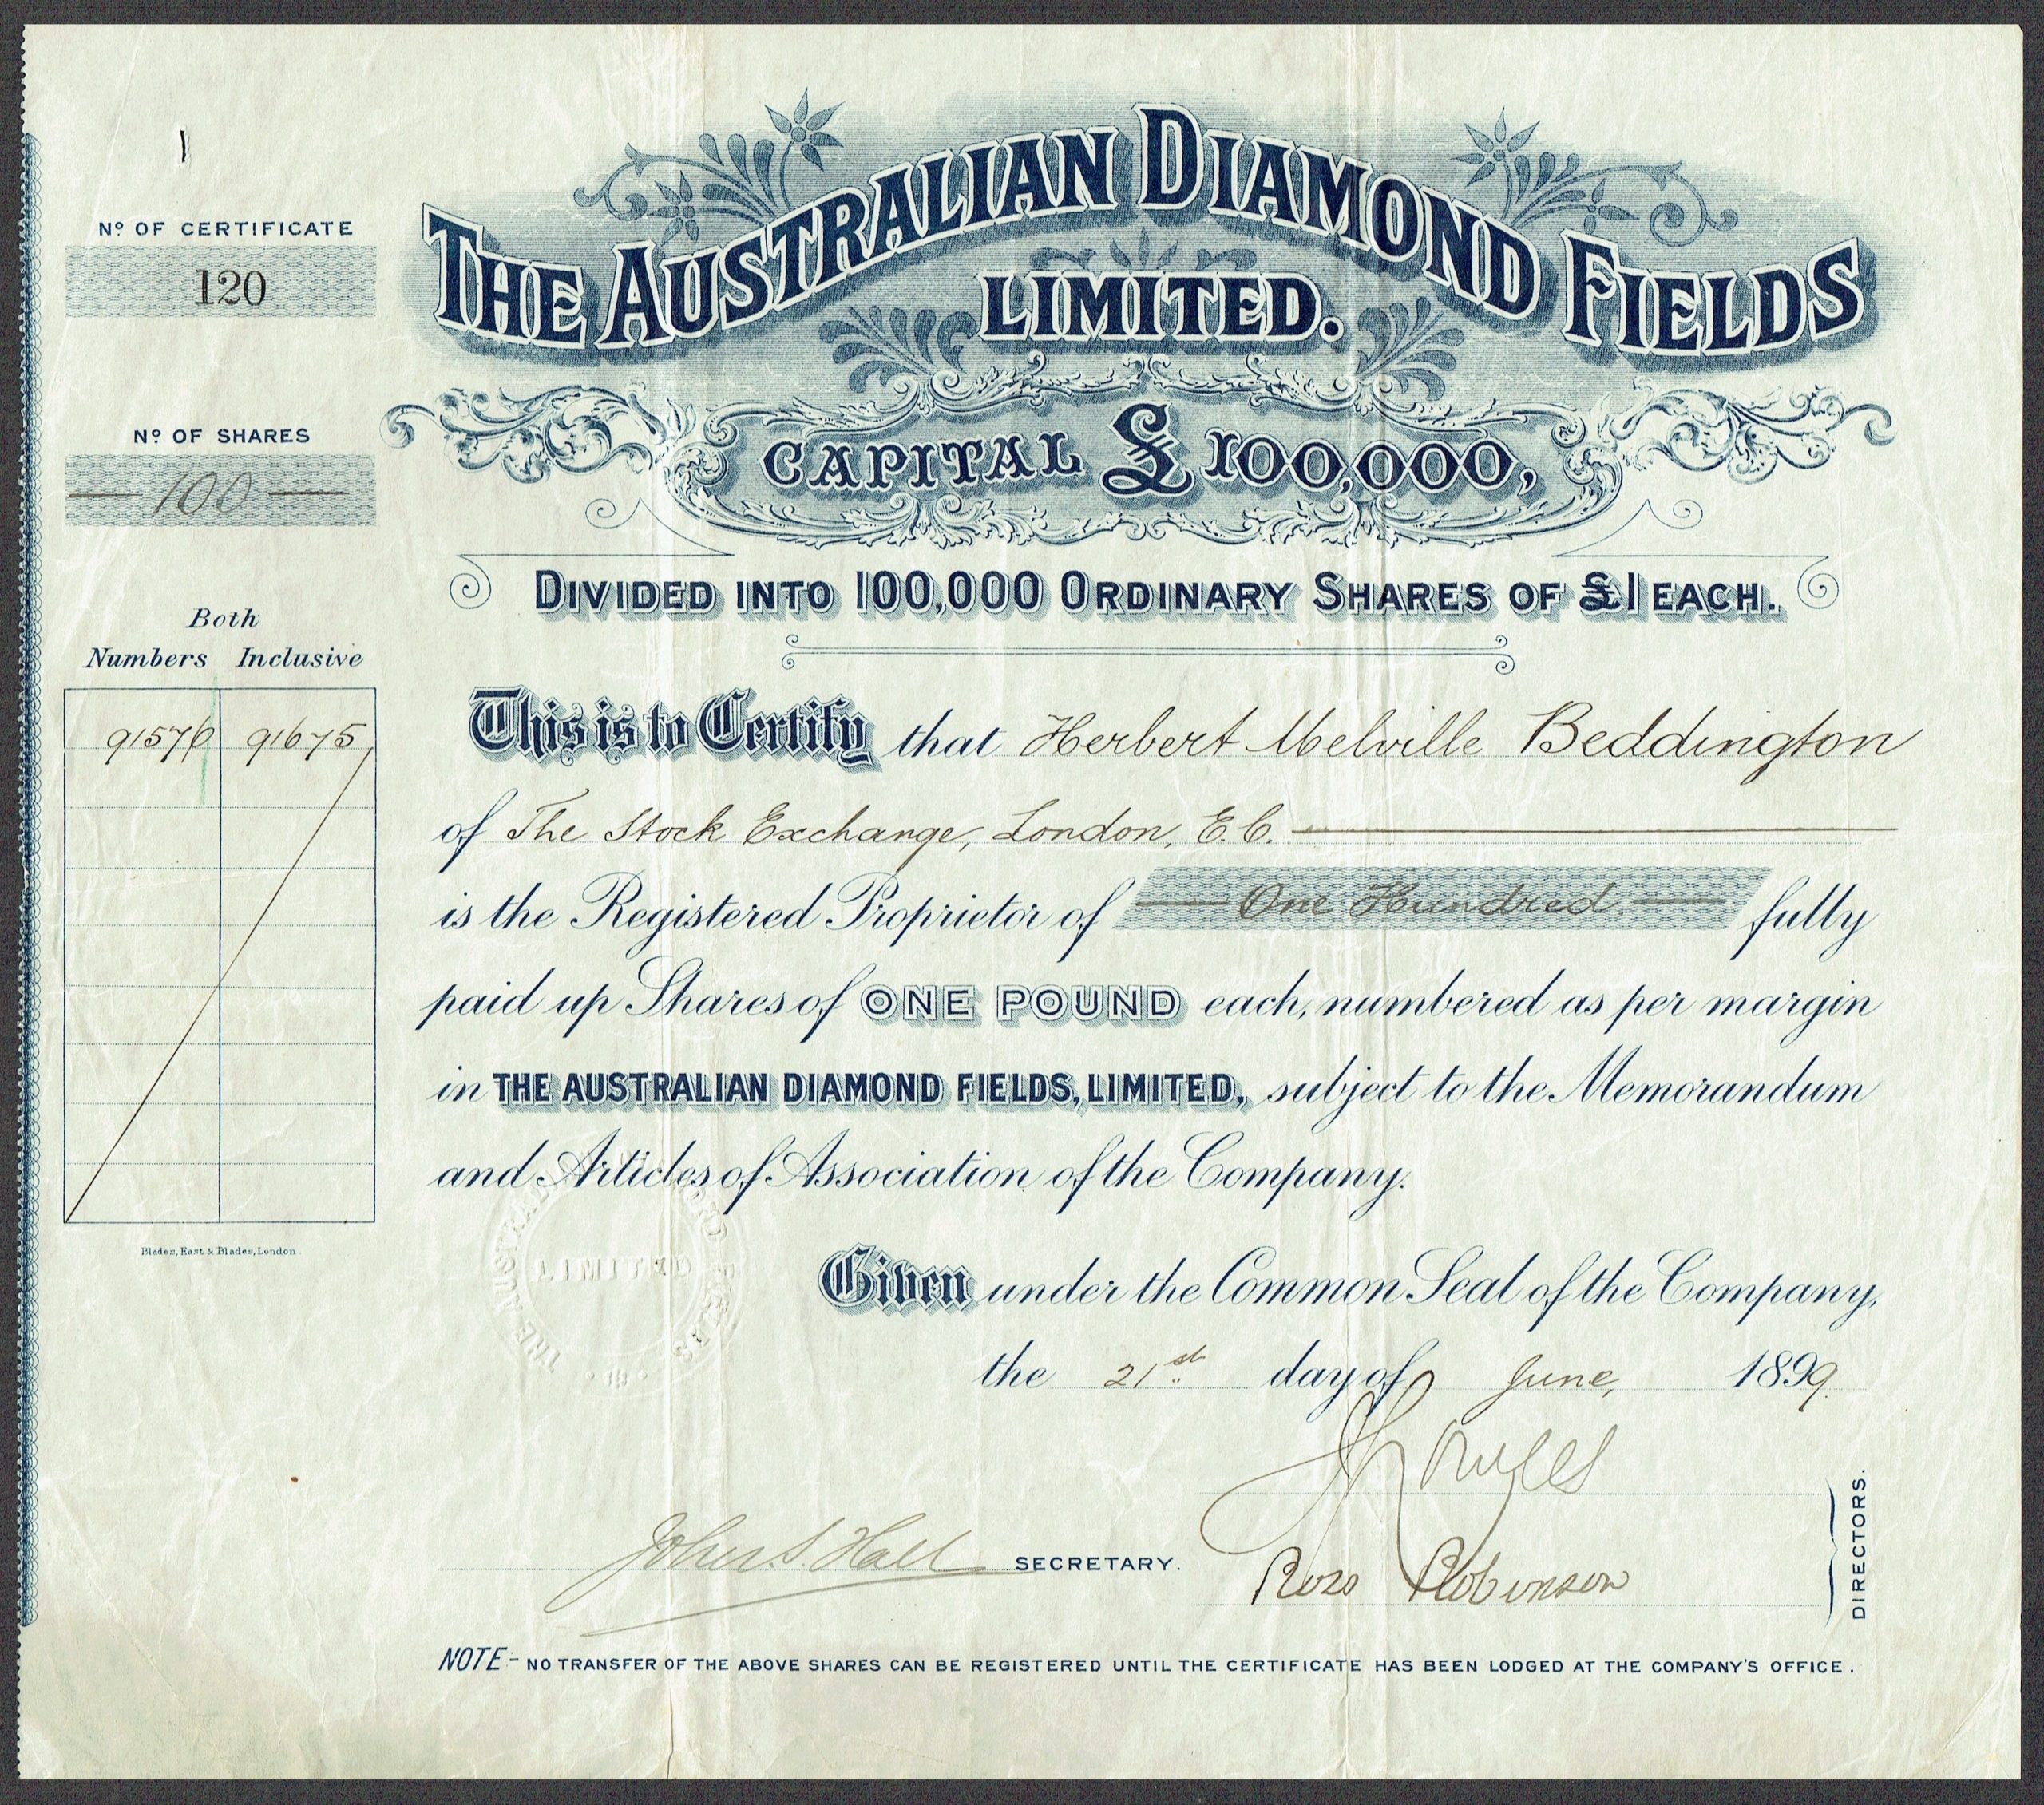 THE AUSTRALIAN DIAMOND FIELDS
LIMITED.
CAPITAL £100,000,
DIVIDED INTO 100,000 ORDINARY SHARES OF £1 EACH.
Nº OF CERTIFICATE
120
Nº OF SHARES
— 100 —
Both
Numbers Inclusive
91576 91675
Blades, East & Blades, London
This is to Certify that Herbert Melville Beddington
of The Stock Exchange, London, E.C.
is the Registered Proprietor of — One Hundred — fully
paid up Shares of ONE POUND each, numbered as per margin
in THE AUSTRALIAN DIAMOND FIELDS, LIMITED, subject to the Memorandum
and Articles of Association of the Company.
THE AUSTRALIAN DIAMOND FIELDS
LIMITED
Given under the Common Seal of the Company,
the 21st day of June, 1899.
John S. Hall SECRETARY.
Ross Robinson
DIRECTORS.
NOTE- NO TRANSFER OF THE ABOVE SHARES CAN BE REGISTERED UNTIL THE CERTIFICATE HAS BEEN LODGED AT THE COMPANY'S OFFICE.